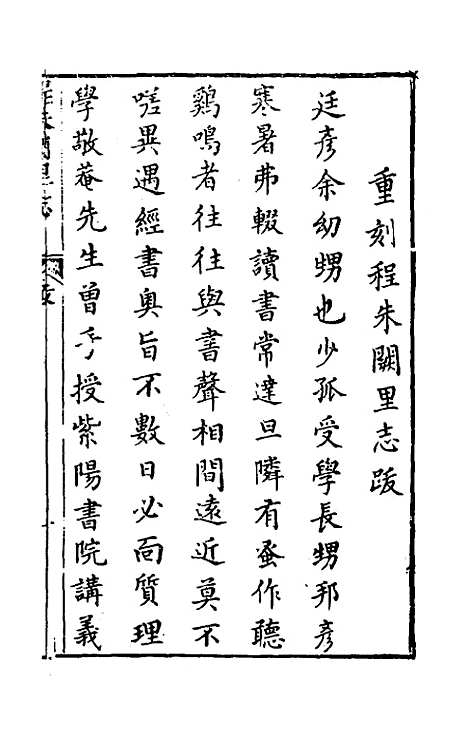 重刻程朱闕里志跋
廷彥余幼甥也少孤受學長甥邦彥
寒暑弗輟讀書常達旦隣有蚤作聽
鷄鳴者往往與書聲相間遠近莫不
嗟異遇經書奥旨不數日必面質理
學敬菴先生曾手授紫陽書院講義
程朱闕里志
跋